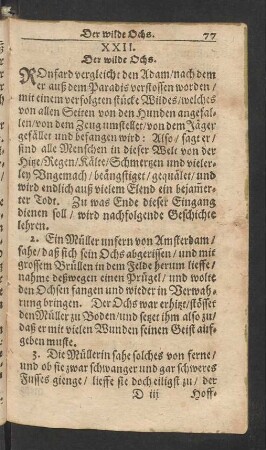 Der wilde Ochs. 77
XXII.
Der wilde Ochs.
ROnsard vergleicht den Adam/nach dem
er auß dem Paradis verstossen worden/
mit einem verfolgten stücke Wildes/welches
von allen Seiten von den Hunden angefal-
len/von dem Zeug umstellet/von dem Jäger
gefället und befangen wird: Also/ sagt er/
sind alle Menschen in dieser Welt von der
Hitze/Regen/Kälte/Schmertzen und vieler-
ley Ungemach/ beängstiget/ gequälet/ und
wird endlich auß vielem Elend ein bejam̃er-
ter Todt. Zu was Ende dieser Eingang
dienen soll/ wird nachfolgende Geschichte
lehren.
2. Ein Müller unfern von Amsterdam/
sahe/ daß sich sein Ochs abgerissen/ und mit
grossem Brüllen in dem Felde herum lieffe/
nahme deßwegen einen Prügel/ und wolte
den Ochsen fangen und wieder in Verwah-
rung bringen. Der Ochs war erhitzt/stösset
den Müller zu Boden/und setzt ihm also zu/
daß er mit vielen Wunden seinen Geist auf-
geben muste.
3. Die Müllerin sahe solches von ferne/
und ob sie zwar schwanger und gar schweres
Fusses gienge/ lieffe sie doch eiligst zu/ der
D iij Hoff-